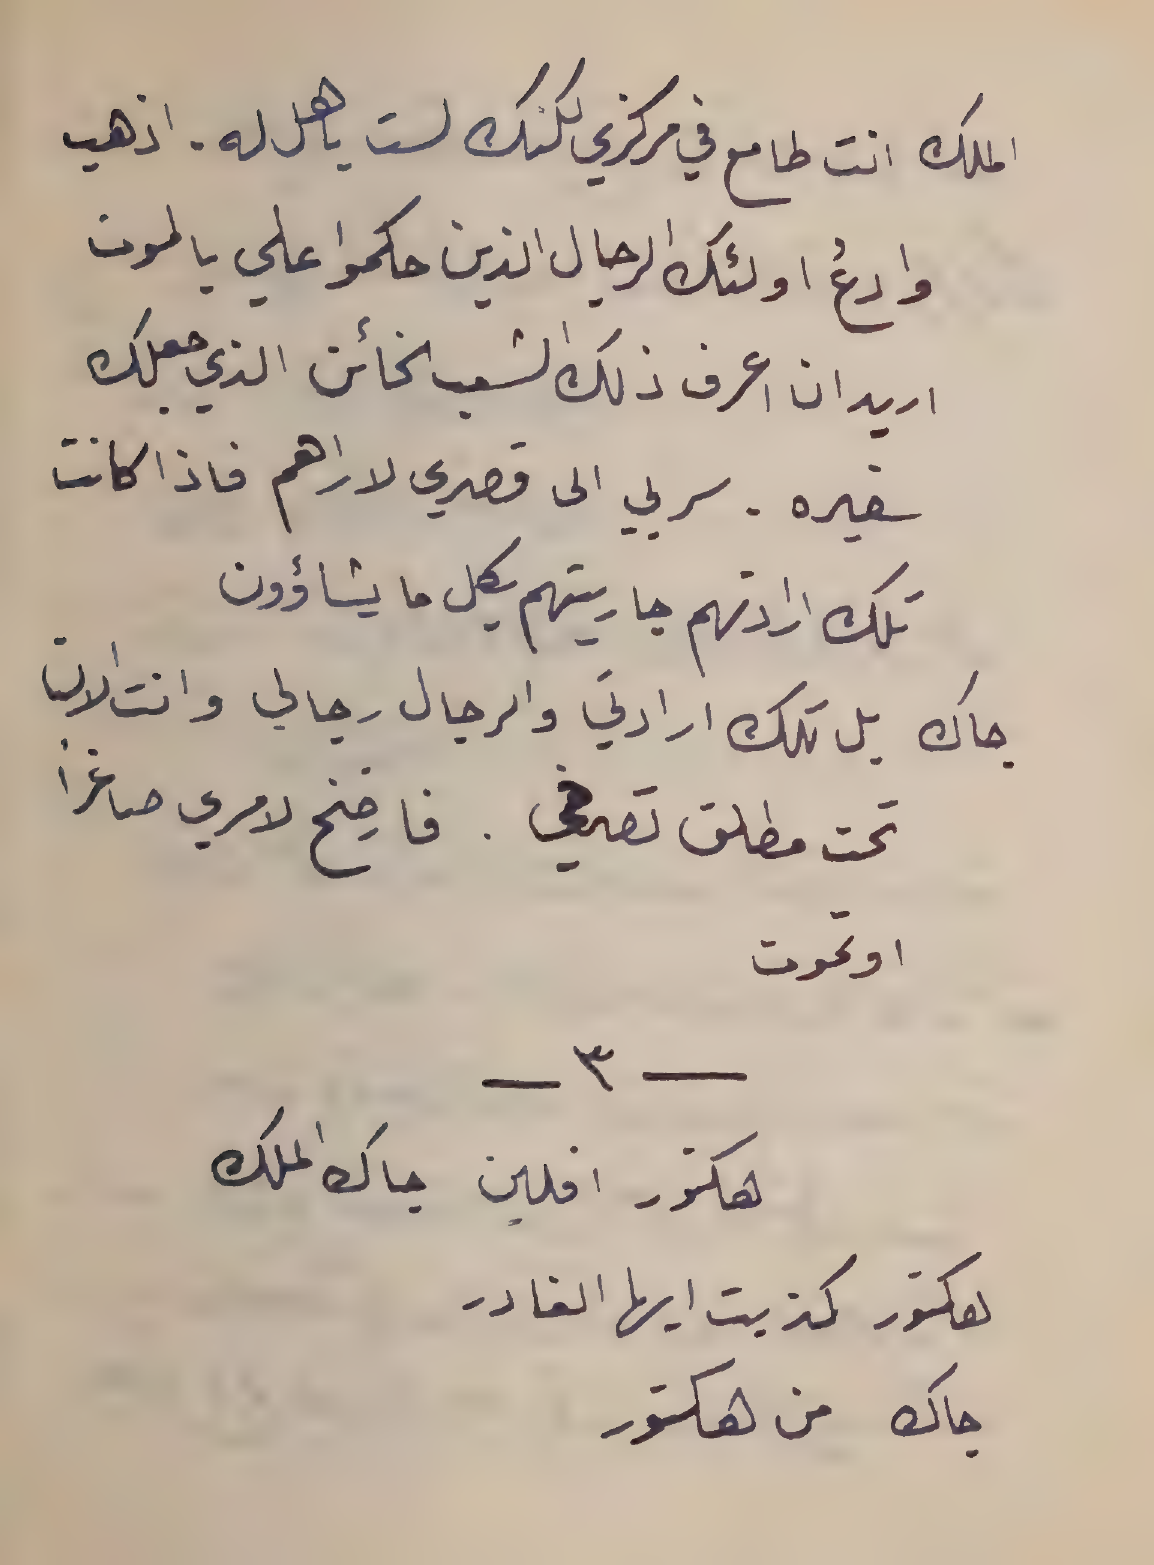 الملك انت طامع في مركزي لكنك لست باهل له . اذهب
وادعُ اولئك الرجال الذين حكموا علي بالموت
اريد ان اعرف ذلك الشعب الخائن الذي جعلك
سفيره . سر بي الى قصري لاراهم فاذا كانت
تلك ارادتهم جاريتهم بكل ما يشاؤون
جاك بل تلك ارادتي والرجال رجالي وانت الان
تحت مطلق تصرفي . فاخضع لامري صاغراً
او تموت
— ٣ —
هكتور افلين جاك الملك
هكتور كذبت ايها الغادر
جاك من هكتور